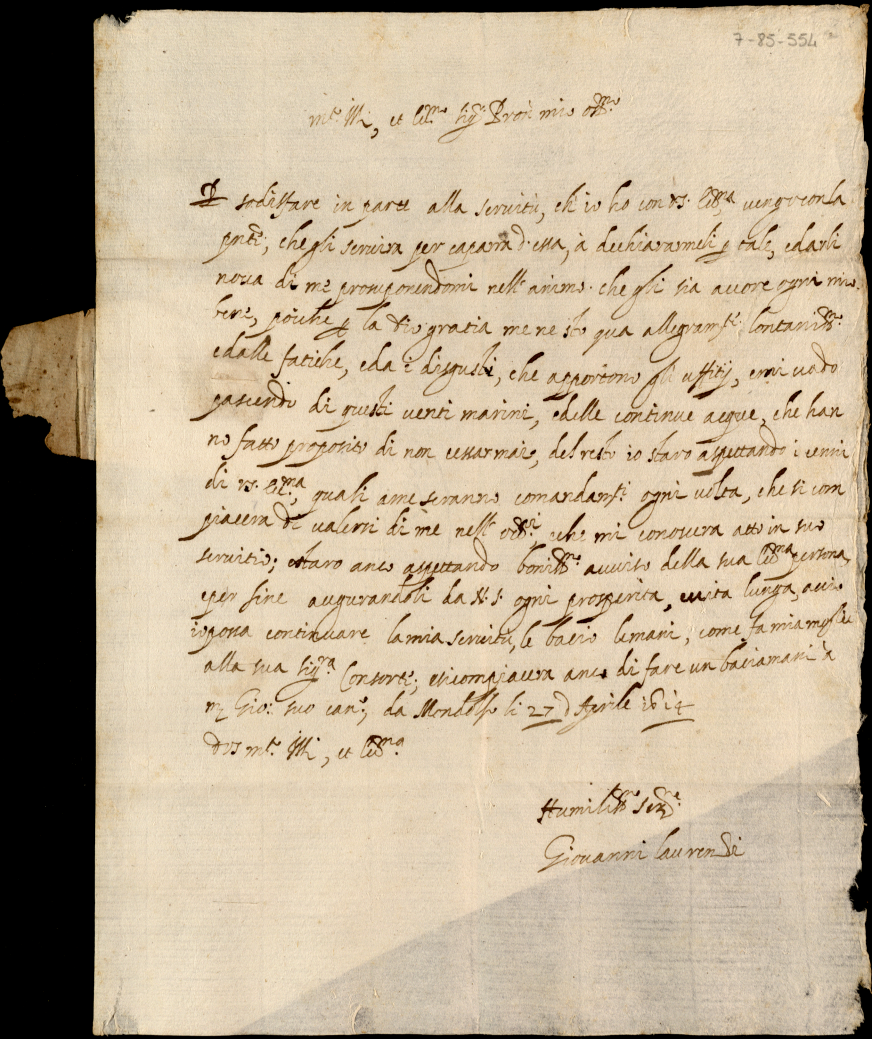 7-85-554
m.to Ill., et ecc.mo sig.r Pron mio oss.mo
P sodisfare in parte alla servitù, ch'io ho con V.S. ecc.ma vengo con la
pnte, che gli servira per caparra d'essa, à dechiararmeli p tale, e darli
nova di me prosuponendomi nell'animo che gli sia a cuore ogni mio
bene, poiche p la Dio gratia me ne sto qua allegram.te lontaniss.mo
e dalle fatiche, e da i disgusti, che apportono gli uffitij, e mi vado
pascendo di questi venti marini, e delle continue acque, che han
no fatto proposito di non cessar mai, del resto io staro aspettando i cenni
di V.S. ecc.ma, quali a me seranno comandam.ti ogni volta, che si com
piacera di valersi di me nell' e che mi conoscera atto in suo
servitio; e staro anco aspettando boniss.mo avviso della sua ecc.ma persona,
e per fine augurandoli da N.S. ogni prosperita, e vita lunga, acciò
io possa continuare la mia servitù, le bacio le mani, come fa mia moglie
alla sua sig.ra Consorte; e si compiacera anco di fare un baciamani à
m. Gio: suo da Mondolfo li 27 d Aprile 1614
D V S m.to Ill., et ecc.ma
Humiliss.mo ser.re
Giovanni Laurendi